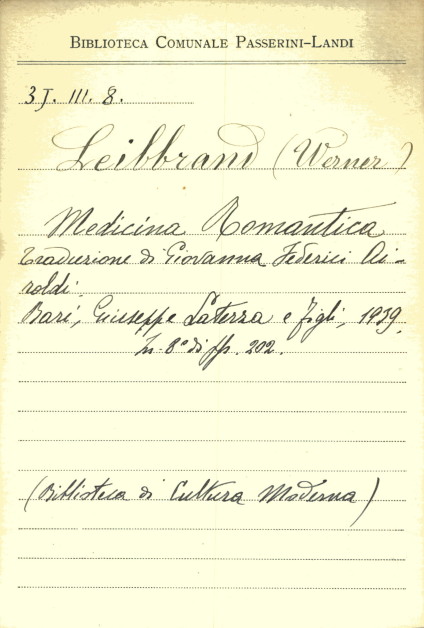 BIBLIOTECA COMUNALE PASSERINI-LANDI
3J. III. 8.
Leibbrand (Werner)
Medicina Romantica
Traduzione di Giovanna Federici Ai-
roldi.
Bari, Giuseppe Laterza e figli, 1939.
In-8° di pp. 202.
(Biblioteca di Cultura Moderna)